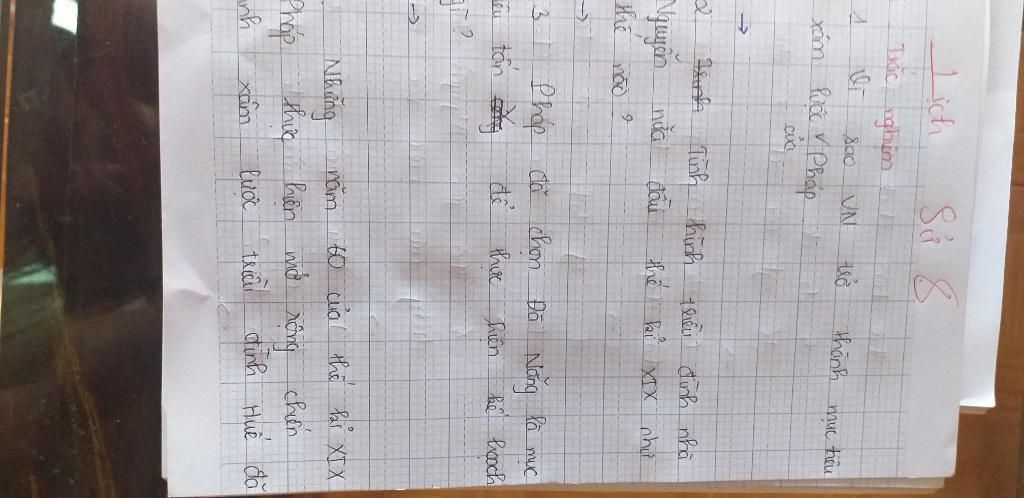 Lịch Sử 8
Trắc nghiệm
1 Vì sao VN trở thành mục tiêu
xâm lược Pháp
của
2 Tình hình triều đình nhà
Nguyễn nửa đầu thế kỉ XIX như
thế nào?
→
3 Pháp đã chọn Đà Nẵng là mục
tiêu tấn để thực hiện kế hoạch
gì?
→
Những năm 60 của thế kỉ XIX
Pháp thực hiện mở rộng chiến
xâm lược triều đình Huế đã